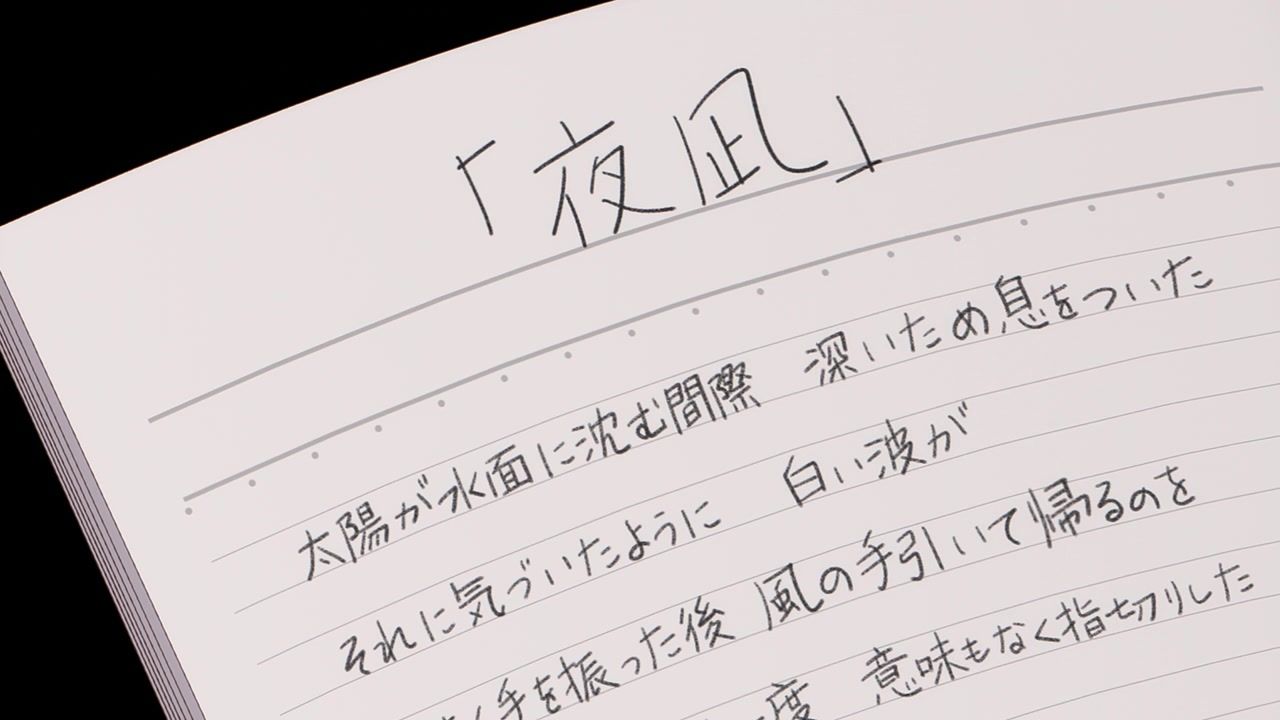 「夜凪」
太陽が水面に沈む間際　深いため息をついた
それに気づいたように　白い波が
く手を振った後 風の手引いて帰るのを
一度　意味もなく指切りした